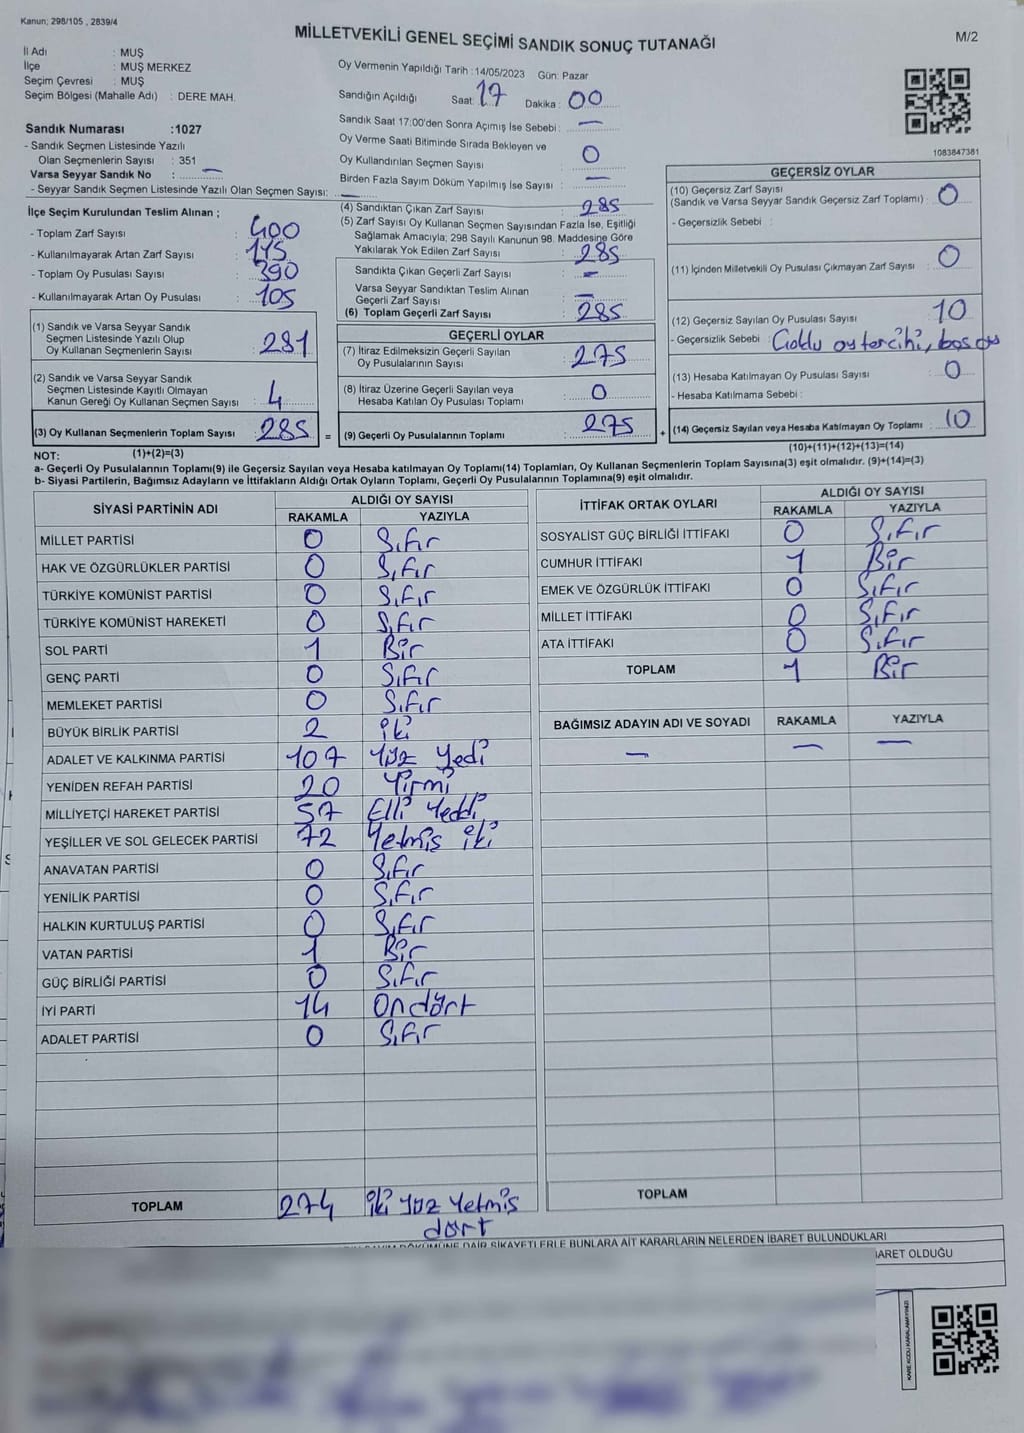 Kanun; 298/105 , 2839/4
MİLLETVEKİLİ GENEL SEÇİMİ SANDIK SONUÇ TUTANAĞI
M/2
İl Adı : MUŞ
İlçe : MUŞ MERKEZ
Seçim Çevresi : MUŞ
Seçim Bölgesi (Mahalle Adı) : DERE MAH.
Sandık Numarası :1027
- Sandık Seçmen Listesinde Yazılı
Olan Seçmenlerin Sayısı : 351
Varsa Seyyar Sandık No : —
- Seyyar Sandık Seçmen Listesinde Yazılı Olan Seçmen Sayısı: —
Oy Vermenin Yapıldığı Tarih :14/05/2023 Gün: Pazar
Sandığın Açıldığı Saat: 17 Dakika : 00
Sandık Saat 17:00'den Sonra Açımış İse Sebebi : —
Oy Verme Saati Bitiminde Sırada Bekleyen ve
Oy Kullandırılan Seçmen Sayısı : 0
Birden Fazla Sayım Döküm Yapılmış İse Sayısı : —
1083847381
İlçe Seçim Kurulundan Teslim Alınan ;
- Toplam Zarf Sayısı : 400
- Kullanılmayarak Artan Zarf Sayısı : 115
- Toplam Oy Pusulası Sayısı : 390
- Kullanılmayarak Artan Oy Pusulası : 105
(1) Sandık ve Varsa Seyyar Sandık
Seçmen Listesinde Yazılı Olup
Oy Kullanan Seçmenlerin Sayısı : 281
(2) Sandık ve Varsa Seyyar Sandık
Seçmen Listesinde Kayıtlı Olmayan
Kanun Gereği Oy Kullanan Seçmen Sayısı : 4
(3) Oy Kullanan Seçmenlerin Toplam Sayısı : 285 =
(1)+(2)=(3)
(4) Sandıktan Çıkan Zarf Sayısı : 285
(5) Zarf Sayısı Oy Kullanan Seçmen Sayısından Fazla İse, Eşitliği
Sağlamak Amacıyla; 298 Sayılı Kanunun 98. Maddesine Göre
Yakılarak Yok Edilen Zarf Sayısı : 285
Sandıkta Çıkan Geçerli Zarf Sayısı : —
Varsa Seyyar Sandıktan Teslim Alınan
Geçerli Zarf Sayısı : —
(6) Toplam Geçerli Zarf Sayısı : 285
GEÇERLİ OYLAR
(7) İtiraz Edilmeksizin Geçerli Sayılan
Oy Pusulalarının Sayısı : 275
(8) İtiraz Üzerine Geçerli Sayılan veya
Hesaba Katılan Oy Pusulası Toplamı : 0
(9) Geçerli Oy Pusulalarının Toplamı : 275 +
GEÇERSİZ OYLAR
(10) Geçersiz Zarf Sayısı
(Sandık ve Varsa Seyyar Sandık Geçersiz Zarf Toplamı) : 0
- Geçersizlik Sebebi :
(11) İçinden Milletvekili Oy Pusulası Çıkmayan Zarf Sayısı : 0
(12) Geçersiz Sayılan Oy Pusulası Sayısı : 10
- Geçersizlik Sebebi : Çoklu oy tercihi, boş oy
(13) Hesaba Katılmayan Oy Pusulası Sayısı : 0
- Hesaba Katılmama Sebebi :
(14) Geçersiz Sayılan veya Hesaba Katılmayan Oy Toplamı : 10
(10)+(11)+(12)+(13)=(14)
NOT:
a- Geçerli Oy Pusulalarının Toplamı(9) ile Geçersiz Sayılan veya Hesaba katılmayan Oy Toplamı(14) Toplamları, Oy Kullanan Seçmenlerin Toplam Sayısına(3) eşit olmalıdır. (9)+(14)=(3)
b- Siyasi Partilerin, Bağımsız Adayların ve İttifakların Aldığı Ortak Oyların Toplamı, Geçerli Oy Pusulalarının Toplamına(9) eşit olmalıdır.
SİYASİ PARTİNİN ADI ALDIĞI OY SAYISI
RAKAMLA YAZIYLA
MİLLET PARTİSİ 0 Sıfır
HAK VE ÖZGÜRLÜKLER PARTİSİ 0 Sıfır
TÜRKİYE KOMÜNİST PARTİSİ 0 Sıfır
TÜRKİYE KOMÜNİST HAREKETİ 0 Sıfır
SOL PARTİ 1 Bir
GENÇ PARTİ 0 Sıfır
MEMLEKET PARTİSİ 0 Sıfır
BÜYÜK BİRLİK PARTİSİ 2 iki
ADALET VE KALKINMA PARTİSİ 107 Yüz Yedi
YENİDEN REFAH PARTİSİ 20 Yirmi
MİLLİYETÇİ HAREKET PARTİSİ 57 Elli Yeddi
YEŞİLLER VE SOL GELECEK PARTİSİ 72 Yetmiş iki
ANAVATAN PARTİSİ 0 Sıfır
YENİLİK PARTİSİ 0 Sıfır
HALKIN KURTULUŞ PARTİSİ 0 Sıfır
VATAN PARTİSİ 1 Bir
GÜÇ BİRLİĞİ PARTİSİ 0 Sıfır
İYİ PARTİ 14 Ondört
ADALET PARTİSİ 0 Sıfır
TOPLAM 274 iki yüz Yetmiş
dört
İTTİFAK ORTAK OYLARI ALDIĞI OY SAYISI
RAKAMLA YAZIYLA
SOSYALİST GÜÇ BİRLİĞİ İTTİFAKI 0 Sıfır
CUMHUR İTTİFAKI 1 Bir
EMEK VE ÖZGÜRLÜK İTTİFAKI 0 Sıfır
MİLLET İTTİFAKI 0 Sıfır
ATA İTTİFAKI 0 Sıfır
TOPLAM 1 Bir
BAĞIMSIZ ADAYIN ADI VE SOYADI RAKAMLA YAZIYLA
— — —
TOPLAM
DÖKÜMÜNE DAİR ŞİKAYETLERLE BUNLARA AİT KARARLARIN NELERDEN İBARET BULUNDUKLARI
İBARET OLDUĞU
KARE KODU KARALAMAYINIZ!